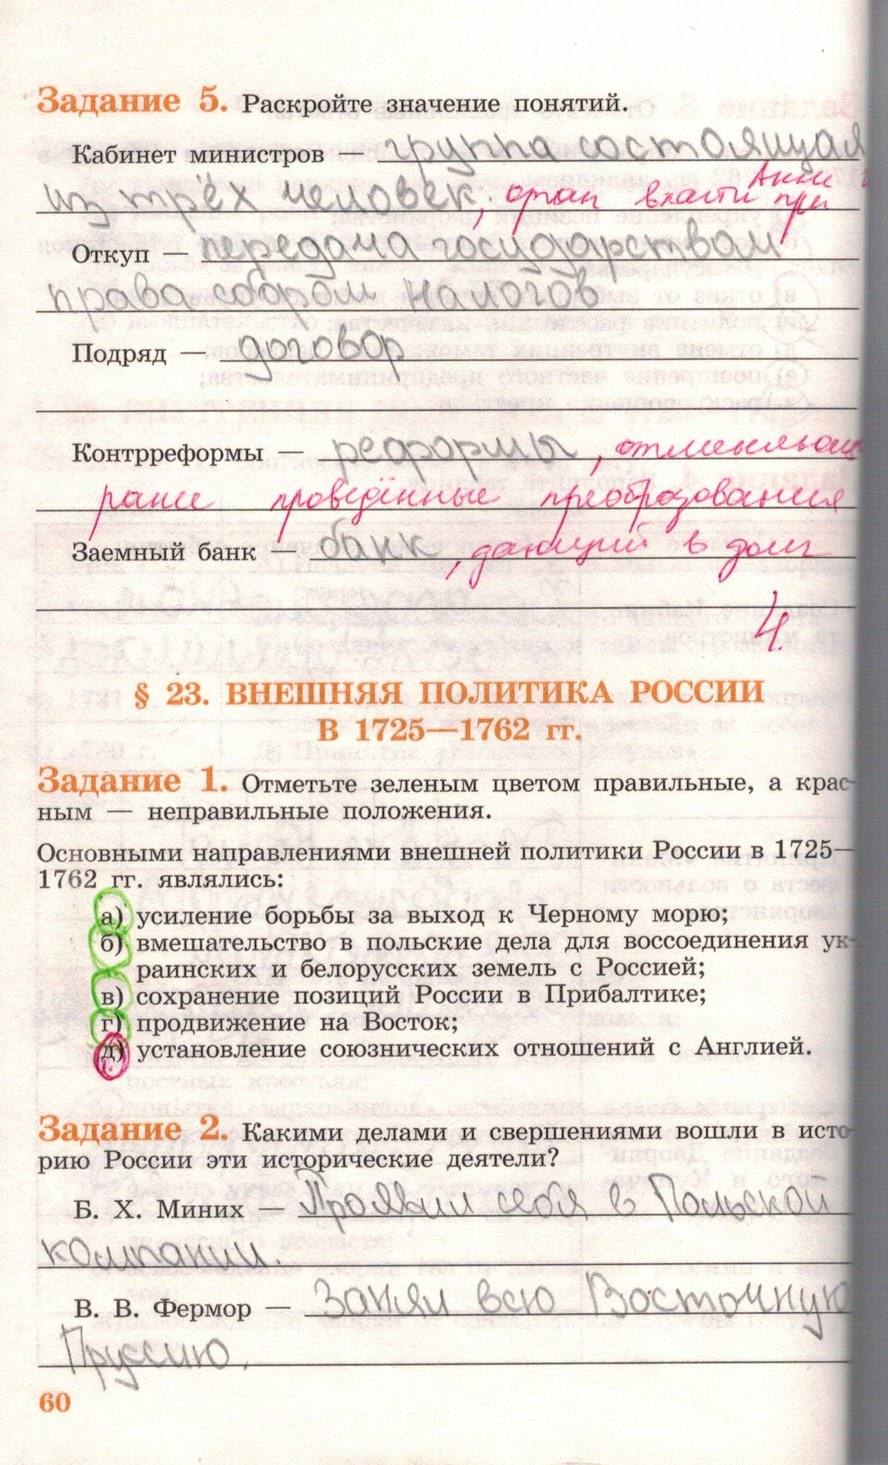 Задание 5. Раскройте значение понятий.
Кабинет министров — группа состоящая
из трёх человек, орган власти при Анне
Откуп — передача государством
права сборам налогов
Подряд — договор
Контрреформы — реформы, отменяющ
ранее проведённые преобразования
Заемный банк — банк, дающий в долг
4
§ 23. ВНЕШНЯЯ ПОЛИТИКА РОССИИ
В 1725—1762 гг.
Задание 1. Отметьте зеленым цветом правильные, а крас-
ным — неправильные положения.
Основными направлениями внешней политики России в 1725—
1762 гг. являлись:
а) усиление борьбы за выход к Черному морю;
б) вмешательство в польские дела для воссоединения ук-
раинских и белорусских земель с Россией;
в) сохранение позиций России в Прибалтике;
г) продвижение на Восток;
д) установление союзнических отношений с Англией.
Задание 2. Какими делами и свершениями вошли в исто-
рию России эти исторические деятели?
Б. Х. Миних — Проявил себя в Польской
компании.
В. В. Фермор — Занял всю Восточную
Пруссию.
60